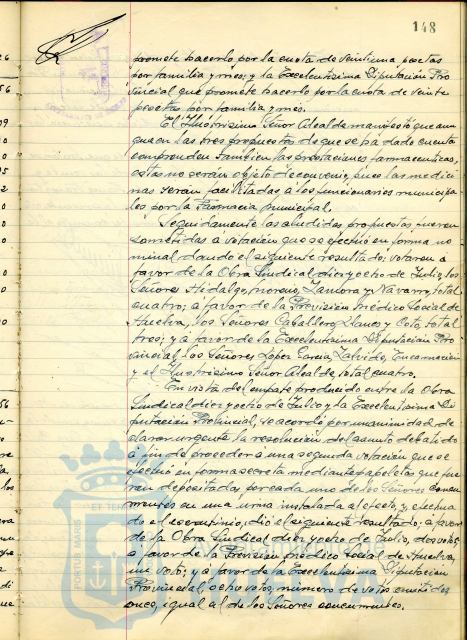 148
promete hacerlo por la cuota de veintiuna pesetas
por familia y mes; y la Excelentísima Diputación Pro
vincial que promete hacerlo por la cuota de veinte
pesetas por familia y mes.
El Ilustrísimo Señor Alcalde manifestó que aun
que en las tres propuestas de que se ha dado cuenta
comprenden también las prestaciones farmaceuticas,
estas no serán objeto de convenio, pues las medici
nas serán facilitadas a los funcionarios municipa
les por la Farmacia municipal.
Seguidamente las aludidas propuestas fueron
sometidas a votación que se efectuó en forma no
minal dando el siguiente resultado: votaron a
favor de la Obra Sindical dieciocho de Julio, los
Señores Hidalgo, Moreno, Zamora y Navarro, total
cuatro; a favor de la Previsión Médico Social de
Huelva, los Señores Caballero, Llanes y Coto, total
tres; y a favor de la Excelentísima Diputación Pro
vincial, los Señores López García, Zalvide, Encarnación
y el Ilustrísimo Señor Alcalde, total cuatro.
En vista del empate producido entre la Obra
Sindical dieciocho de Julio y la Excelentísima Di
putación Provincial, se acordó por unanimidad de
clarar urgente la resolución del asunto debatido
a fin de proceder a una segunda votación que se
efectuó en forma secreta mediante papeletas que fue
ron depositadas por cada uno de los Señores concu
rrentes en una urna instalada al efecto, y, efectua
do el escrutinio, dió el siguiente resultado: a favor
de la Obra Sindical dieciocho de Julio, dos votos;
a favor de la Previsión médico Social de Huelva,
un voto; y a favor de la Excelentísima Diputación
Provincial, ocho votos, número de votos emitidos
once, igual al de los Señores concurrentes.
PORTUS MARIS
ET TERRE